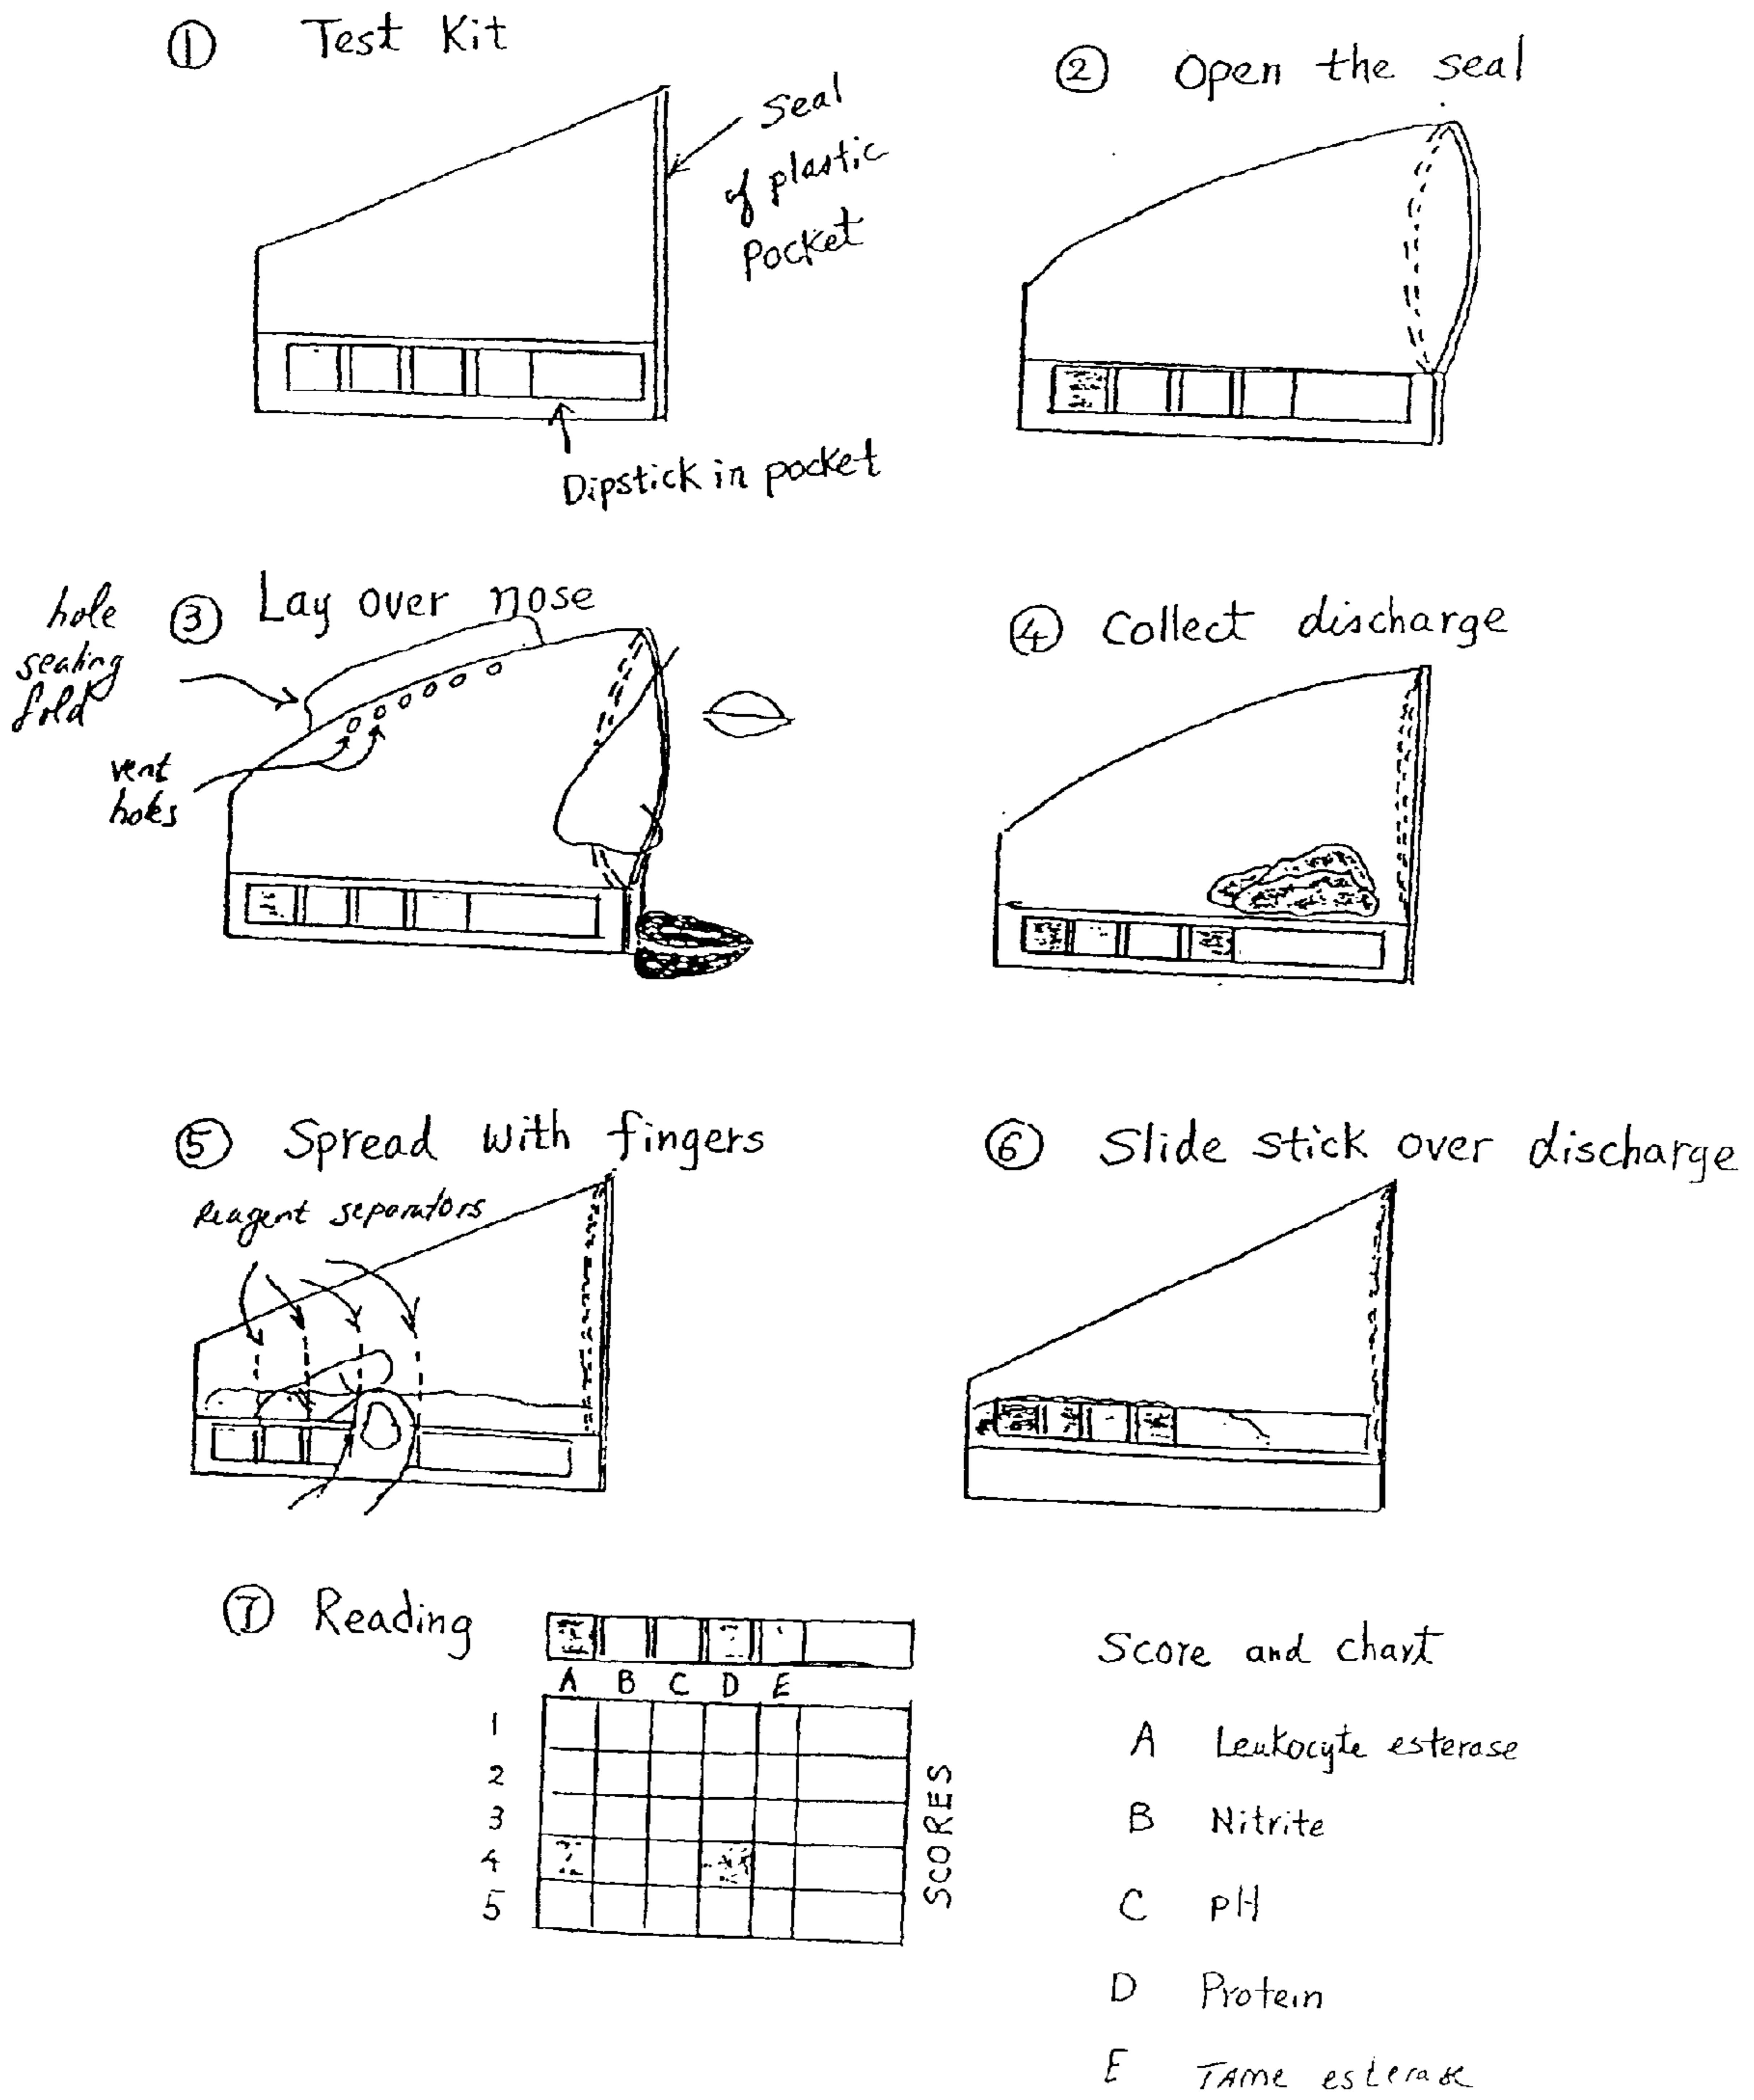 ① Test Kit
seal
of plastic
pocket
Dipstick in pocket
② Open the seal
③ Lay over nose
hole
sealing
fold
vent
holes
④ Collect discharge
⑤ Spread with fingers
Reagent separators
⑥ Slide stick over discharge
⑦ Reading
A B C D E
1
2
3
4
5
SCORES
Score and chart
A Leukocyte esterase
B Nitrite
C pH
D Protein
E TAME esterase